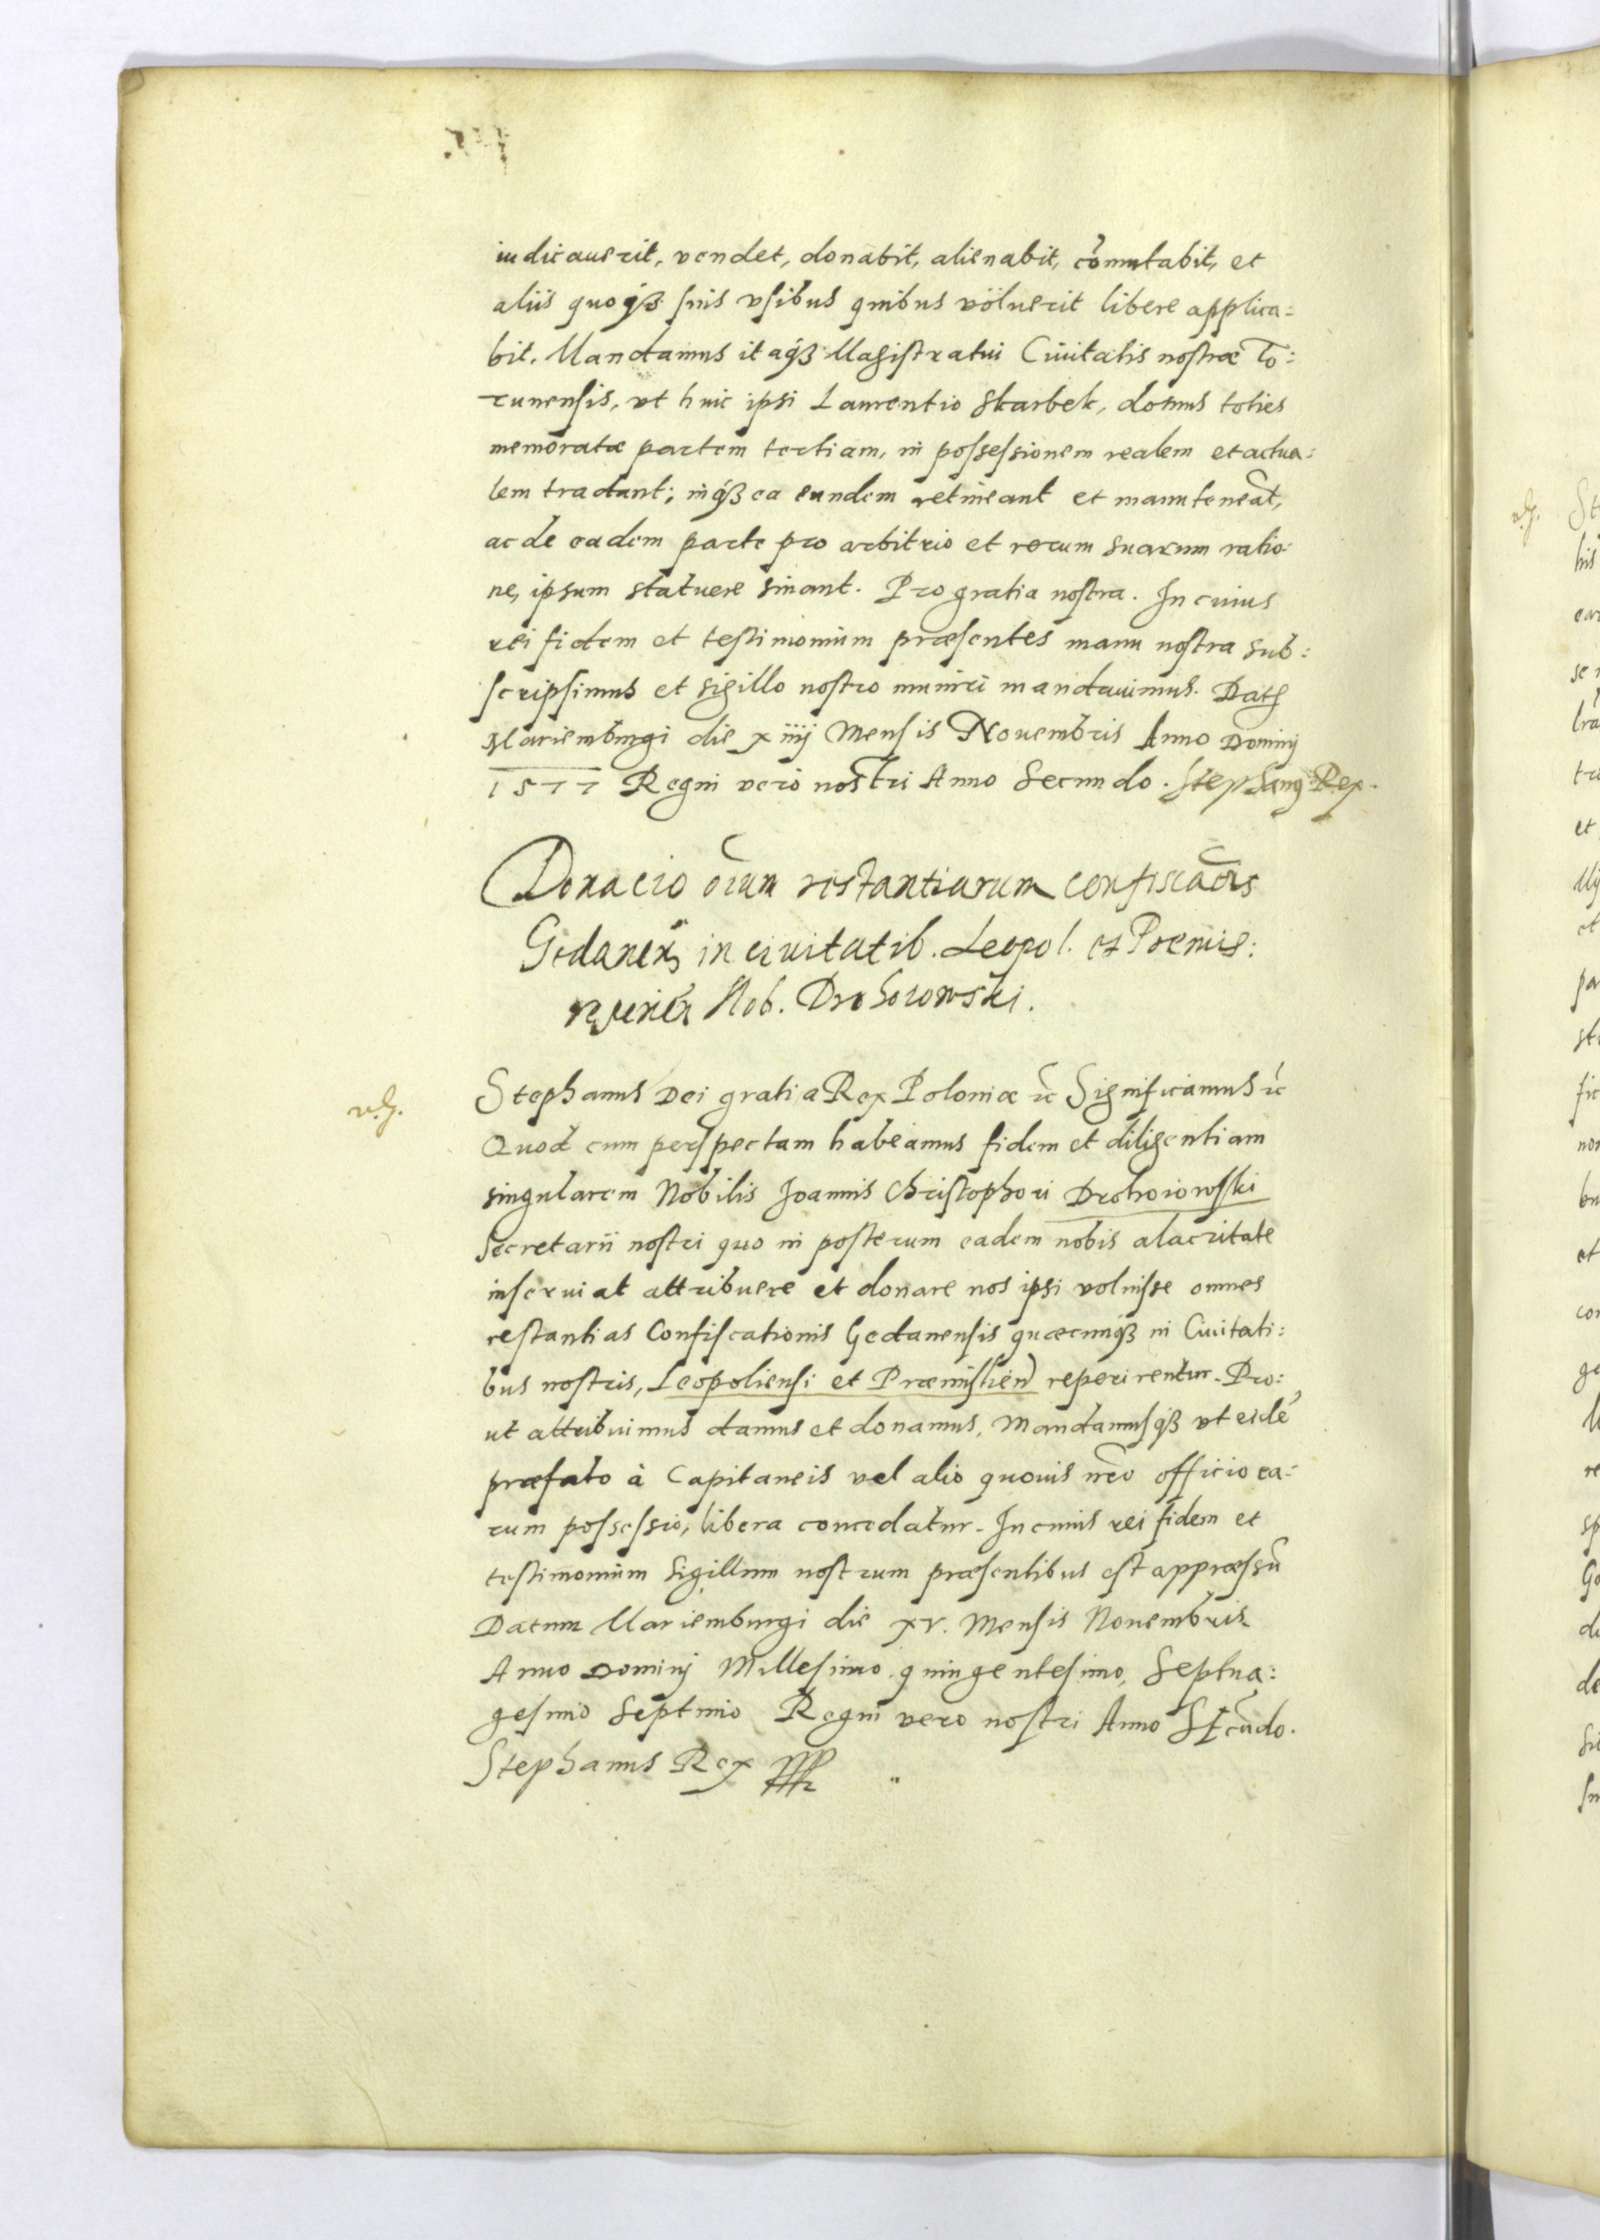 iudicauerit, vendet, donabit, alienabit, com̃utabit, et
aliis quoqȝ suis vsibus quibus voluerit libere applica:
bit. Mandamus itaqȝ Magistratui Ciuitatis nostræ To:
runensis, vt huic ipsi Laurentio Skarbek, domus toties
memoratæ partem tertiam, in possessionem realem et actua:
lem tradant; inqȝ ea eundem retineant et manuteneãt,
ac de eadem parte pro arbitrio et rerum suarum ratio
ne, ipsum statuere sinant. Pro gratia nostra. In cuius
rei fidem et testimonium præsentes manu nostra sub:
scripsimus et sigillo nostro muniri mandauimus. Datꝫ
Mariemburgi die xiiij Mensis Nouembris Anno Dominj
1577 Regni vero nostri Anno Secundo. Stephanꝰ Rex.
Donacio oĩum restantiarum confiscaõis
Gedanen̄ in ciuitatib. Leopol. et Premis:
Nob. Drohoiowski.
v.S.
Stephanus Dei gratia Rex Poloniæ ꝛc̃ Significamus ꝛc̃
Quod cum perspectam habeamus fidem et diligentiam
singularem Nobilis Joannis Christophori Drohoiowski
Secretarii nostri quo in posterum eadem nobis alacritate
inseruiat attribuere et donare nos ipsi voluisse omnes
restantias Confiscationis Gedanensis quæcunqȝ in Ciuitati:
bus nostris, Leopoliensi et Præmislien̄ reperirentur. Pro:
ut attribuimus damus et donamus, Mandamusqȝ vt eidẽ
præfato à Capitaneis vel alio quouis nr̃o officio ea:
rum possessio, libera concedatur. In cuius rei fidem et
testimonium Sigillum nostrum præsentibus est appræssũ
Datum Mariemburgi die xv. Mensis Nouembris
Anno Dominj Millesimo quingentesimo, Septua:
gesimo Septimo Regni vero nostri Anno Secũdo.
Stephanus Rex